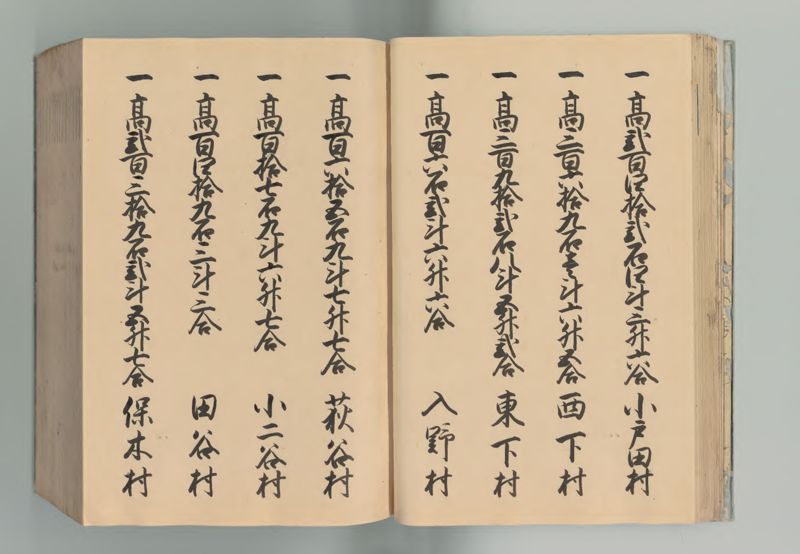 一 高弐百四拾弐石四斗三升六合 小戸田村
一 高三百六拾九石壱斗六升五合 西下村
一 高三百九拾弐石八斗五升弐合 東下村
一 高百六石弐斗六升六合 入野村
一 高百六拾五石九斗七升七合 萩谷村
一 高百拾七石九斗六升七合 小二谷村
一 高百四拾九石三斗三合 田谷村
一 高弐百三拾九石弐斗五升七合 保木村